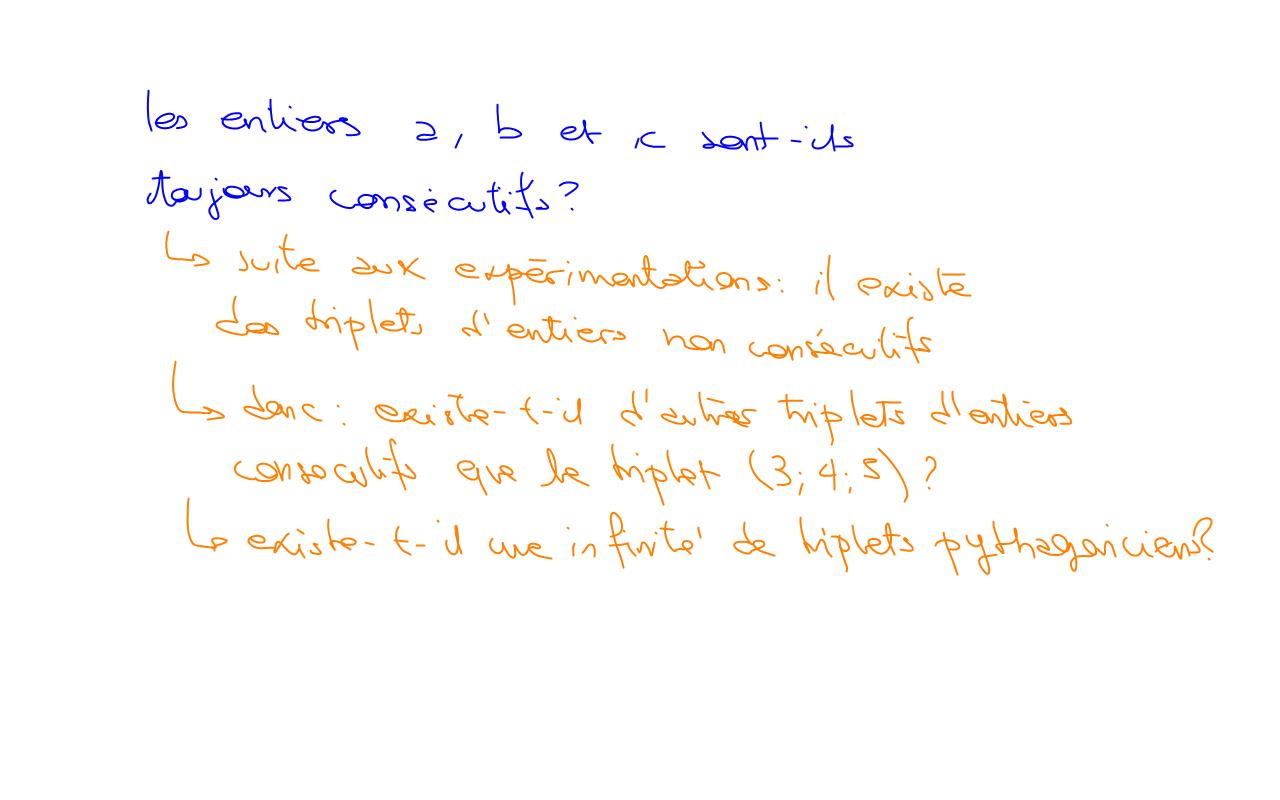 les entiers a, b et c sont-ils
toujours consécutifs?
↳ suite aux expérimentations: il existe
des triplets d'entiers non consécutifs
↳ donc: existe-t-il d'autres triplets d'entiers
consecutifs que le triplet (3; 4; 5) ?
↳ existe-t-il une infinité de triplets pythagoriciens?